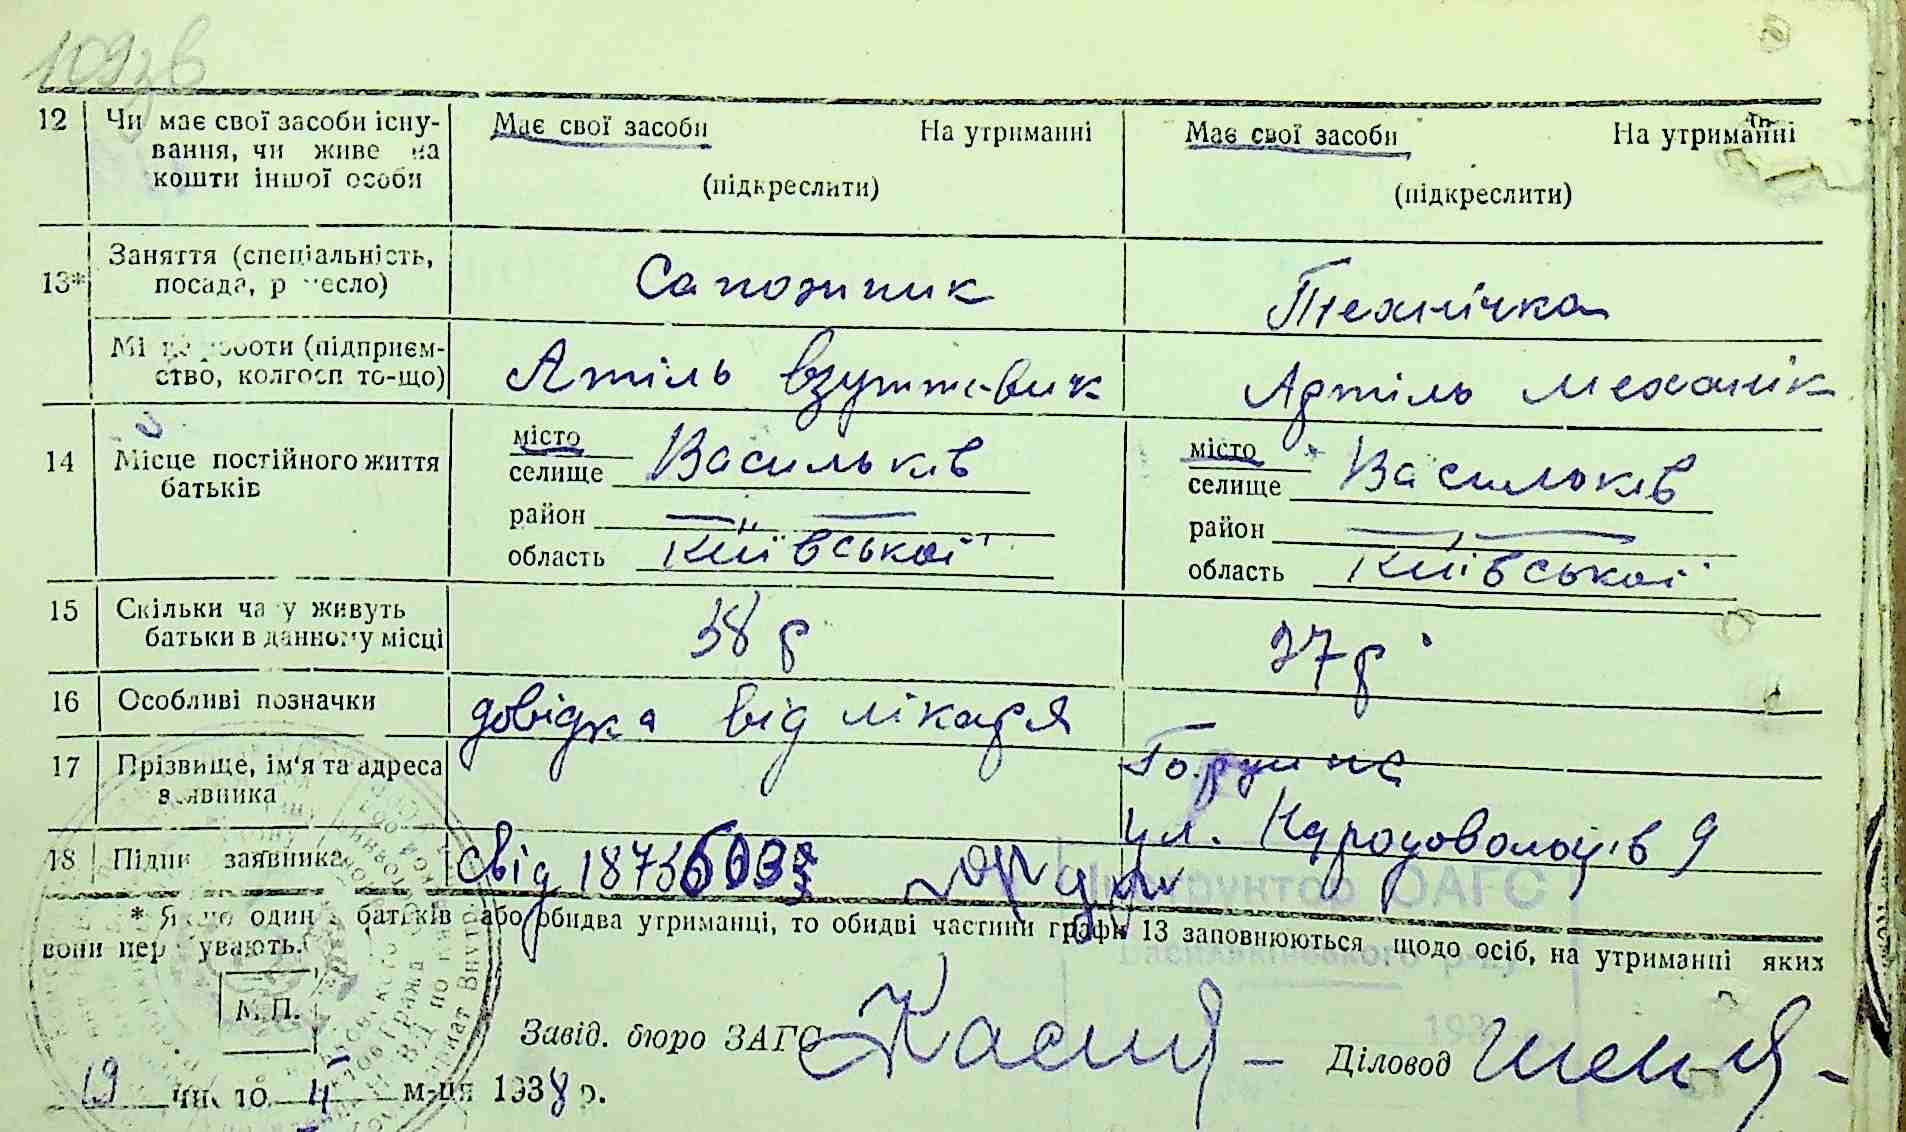 109зв
12 Чи має свої засоби існу- Має свої засоби На утриманні Має свої засоби На утриманні
вання, чи живе на
кошти іншої особи (підкреслити) (підкреслити)
13* Заняття (спеціальність, Сапожник Технічка
посада, р есло)
Мі роботи (підприєм- Атіль взуттєвик Артіль механік
ство, колгосп то-що)
14 Місце постійного життя місто Васильків місто Васильків
батьків селище селище
район район
область Київської область Київської
15 Скільки ча у живуть 38 р 27 р
батьки в данному місці
16 Особливі позначки довідка від лікаря
17 Прізвище, ім'я та адреса
заявника ул. Народовольців 9
18 Підпи заявника Свід
* Якщо один з батьків або обидва утриманці, то обидві частини графи 13 заповнюються щодо осіб, на утриманні яких
вони пер бувають.
Інструктор ОАГС
М.П.
Завід. бюро ЗАГС Діловод
19 число м-ця 1938 р.